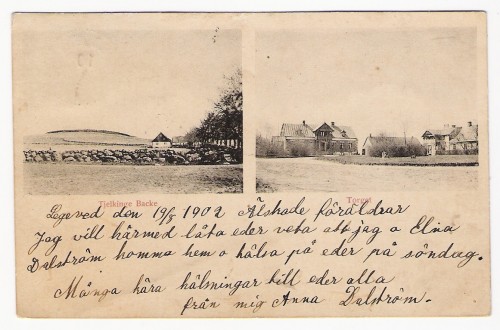 Tjelkinge Backe
Torget
Legeved den 19/8 1902 Älskade föräldrar
Jag vill härmed låta eder veta att jag o Elna
Dalström komma hem o hälsa på eder på söndag.
Många kära hälsningar till eder alla
från mig Anna Dalström.